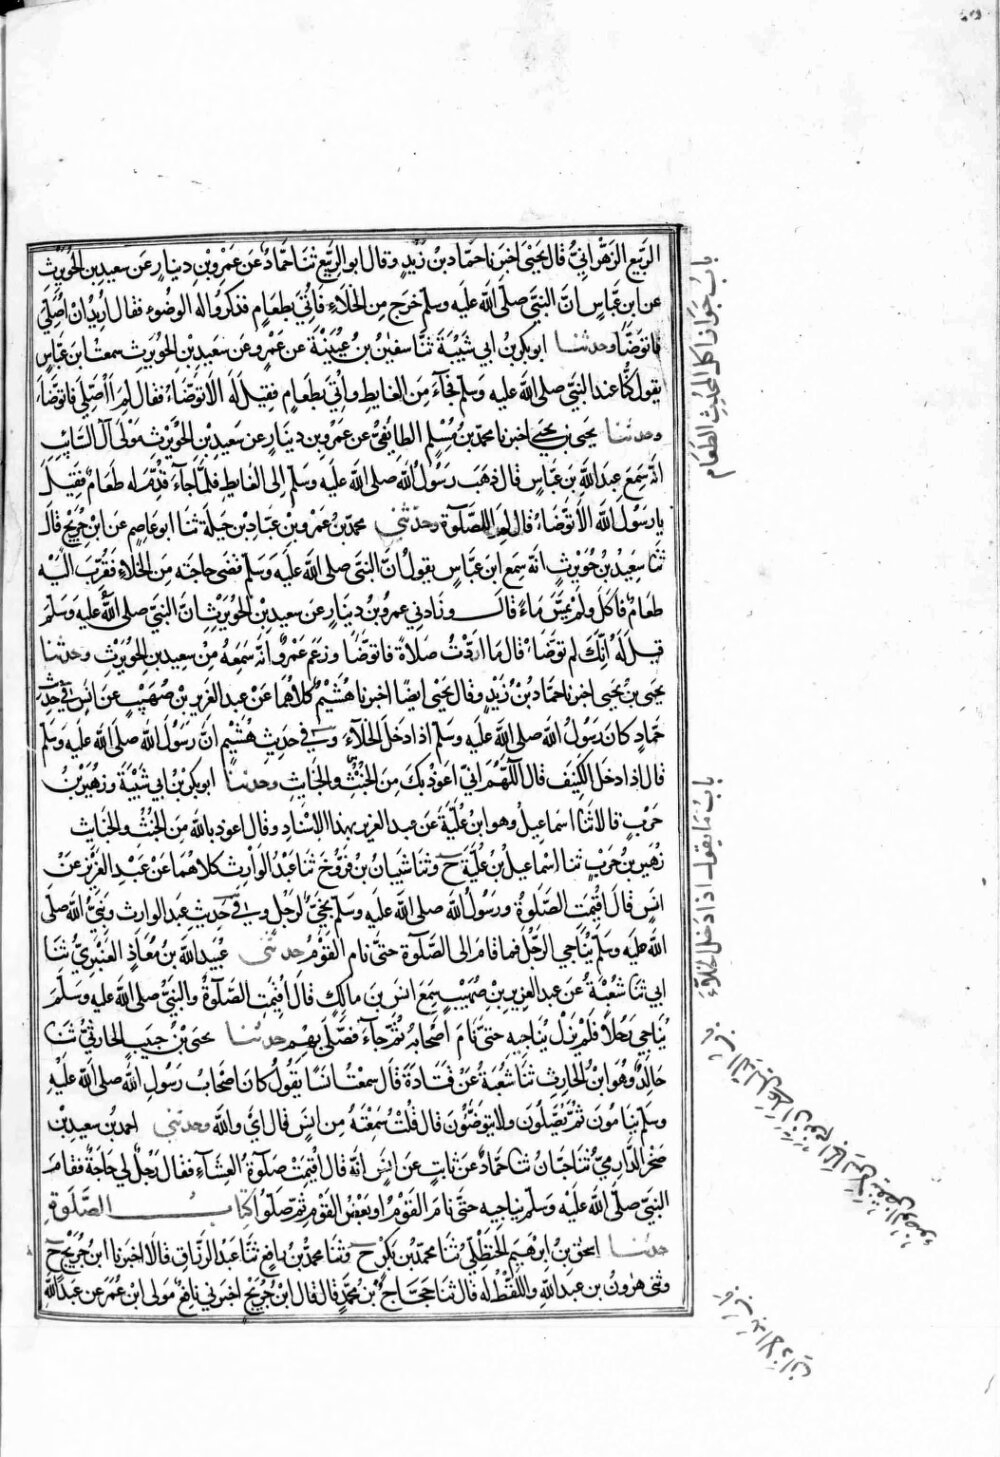 الربيع الزهراني قال يحيى اخبرنا حماد بن زيد وقال ابو الربيع ثنا حماد عن عمرو بن دينار عن سعيد بن الحويرث
عن ابن عباس ان النبي صلى الله عليه وسلم خرج من الخلاء فاتي بطعام فذكروا له الوضوء فقال اريد ان اصلي
فاتوضأ وحدثنا ابو بكر بن ابي شيبة ثنا سفين بن عيينة عن عمرو عن سعيد بن الحويرث سمعت ابن عباس
يقول كنا عند النبي صلى الله عليه وسلم فجاء من الغايط واتي بطعام فقيل له الا توضأ فقال لم أأصلي فاتوضأ
وحدثنا يحيى بن يحيى اخبرنا محمد بن مسلم الطايفي عن عمرو بن دينار عن سعيد بن الحويرث مولى آل السائب
انه سمع عبد الله بن عباس قال ذهب رسول الله صلى الله عليه وسلم الى الغايط فلما جاء قدم له طعام فقيل
يا رسول الله الا توضأ قال لم للصلوة وحدثني محمد بن عمرو بن عباد بن جبلة ثنا ابو عاصم عن ابن جريج قال
ثنا سعيد بن حويرث انه سمع ابن عباس يقول ان النبي صلى الله عليه وسلم قضى حاجته من الخلاء فقرب اليه
طعام فاكل ولم يمس ماء قال وزادني عمرو بن دينار عن سعيد بن الحويرث ان النبي صلى الله عليه وسلم
قيل له انك لم توضأ قال ما اردت صلاة فاتوضأ وزعم عمرو انه سمعه من سعيد بن الحويرث وحدثنا
يحيى بن يحيى اخبرنا حماد بن زيد وقال يحيى ايضا اخبرنا هشيم كلاهما عن عبد العزيز بن صهيب عن انس في حديث
حماد كان رسول الله صلى الله عليه وسلم اذا دخل الخلاء وفي حديث هشيم ان رسول الله صلى الله عليه وسلم
كان اذا دخل الكنيف قال اللهم اني اعوذ بك من الخبث والخبايث وحدثنا ابو بكر بن ابي شيبة وزهير بن
حرب قالا ثنا اسماعيل وهو ابن علية عن عبد العزيز بهذا الاسناد وقال اعوذ بالله من الخبث والخبايث
زهير بن حرب ثنا اسماعيل بن علية ح وثنا شيبان بن فروخ ثنا عبد الوارث كلاهما عن عبد العزيز عن
انس قال اقيمت الصلوة ورسول الله صلى الله عليه وسلم نجي لرجل وفي حديث عبد الوارث ونبي الله صلى
الله عليه وسلم يناجي الرجل فما قام الى الصلوة حتى نام القوم حدثني عبيد الله بن معاذ العنبري ثنا
ابي ثنا شعبة عن عبد العزيز بن صهيب سمع انس بن مالك قال اقيمت الصلوة والنبي صلى الله عليه وسلم
يناجي رجلا فلم يزل يناجيه حتى نام اصحابه ثم جاء فصلى بهم حدثنا يحيى بن حبيب الحارثي ثنا
خالد وهو ابن الحارث ثنا شعبة عن قتادة قال سمعت انسا يقول كان اصحاب رسول الله صلى الله عليه
وسلم ينامون ثم يصلون ولا يتوضؤن قال قلت سمعته من انس قال اي والله وحدثني احمد بن سعيد بن
صخر الدارمي ثنا حبان ثنا حماد عن ثابت عن انس انه قال اقيمت صلوة العشاء فقال رجل لي حاجة فقام
النبي صلى الله عليه وسلم يناجيه حتى نام القوم او بعض القوم ثم صلوا كتاب الصلوة
حدثنا اسحق بن ابرهيم الحنظلي ثنا محمد بن بكر ح وثنا محمد بن رافع ثنا عبد الرزاق قالا اخبرنا ابن جريج ح
وثني هارون بن عبد الله واللفظ له قال ثنا حجاج بن محمد قال قال ابن جريج اخبرني نافع مولى ابن عمر عن عبد الله
باب جواز اكل المحدث الطعام
باب ما يقول اذا دخل الخلاء